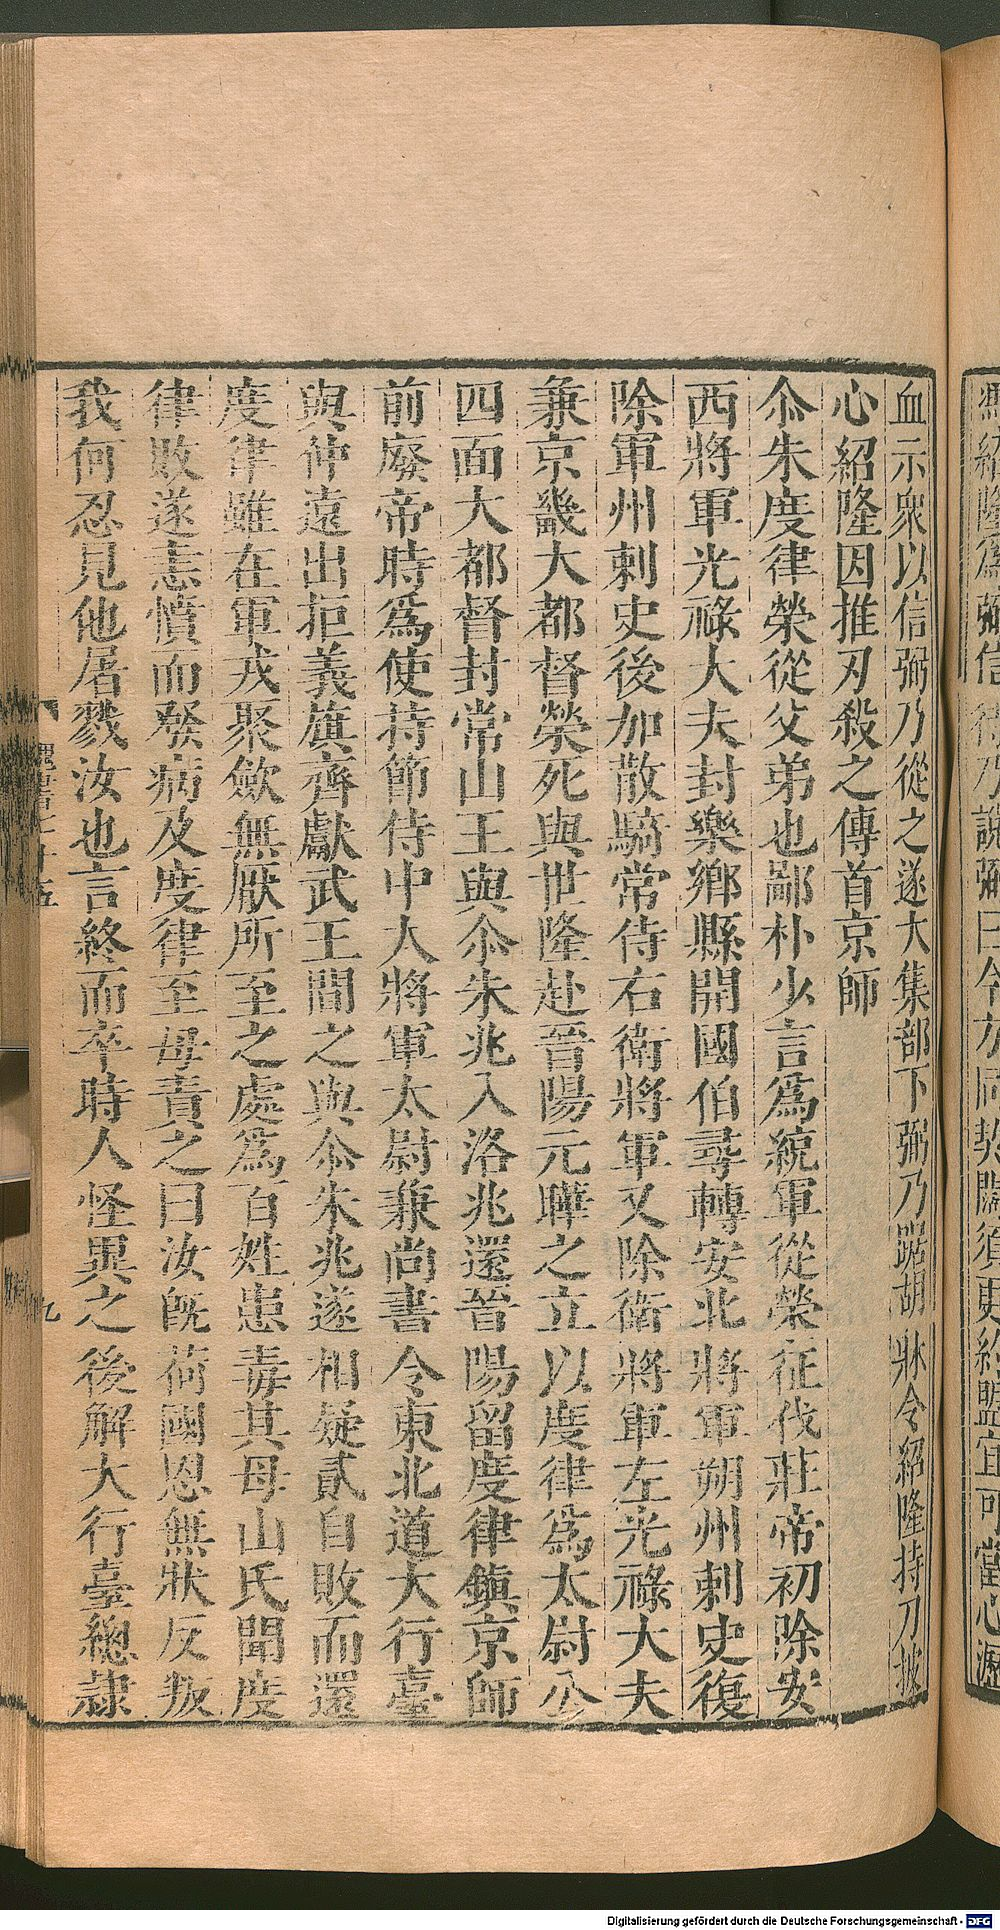 馮紹隆爲弼信待乃說弼曰今方同契闊須更約盟宜可當心瀝
血示衆以信弼乃從之遂大集部下弼乃踞胡牀令紹隆持刀披
心紹隆因推刃殺之傳首京師
尒朱度律榮從父弟也鄙朴少言爲統軍從榮征伐莊帝初除安
西將軍光祿大夫封樂鄉縣開國伯尋轉安北將軍朔州刺史復
除軍州刺史後加散騎常侍右衛將軍又除衛將軍左光祿大夫
兼京畿大都督榮死與世隆赴晉陽元曄之立以度律爲太尉公
四面大都督封常山王與尒朱兆入洛兆還晉陽留度律鎭京師
前廢帝時爲使持節侍中大將軍太尉兼尚書令東北道大行臺
與仲遠出拒義旗齊獻武王間之與尒朱兆遂相疑貳自敗而還
度律雖在軍戎聚斂無厭所至之處爲百姓患毒其母山氏聞度
律敗遂恚憤而發病及度律至母責之曰汝旣荷國恩無狀反叛
我何忍見他屠戮汝也言終而卒時人怪異之後解大行臺總隷
魏書七十五
九
Digitalisierung gefördert durch die Deutsche Forschungsgemeinschaft - DFG